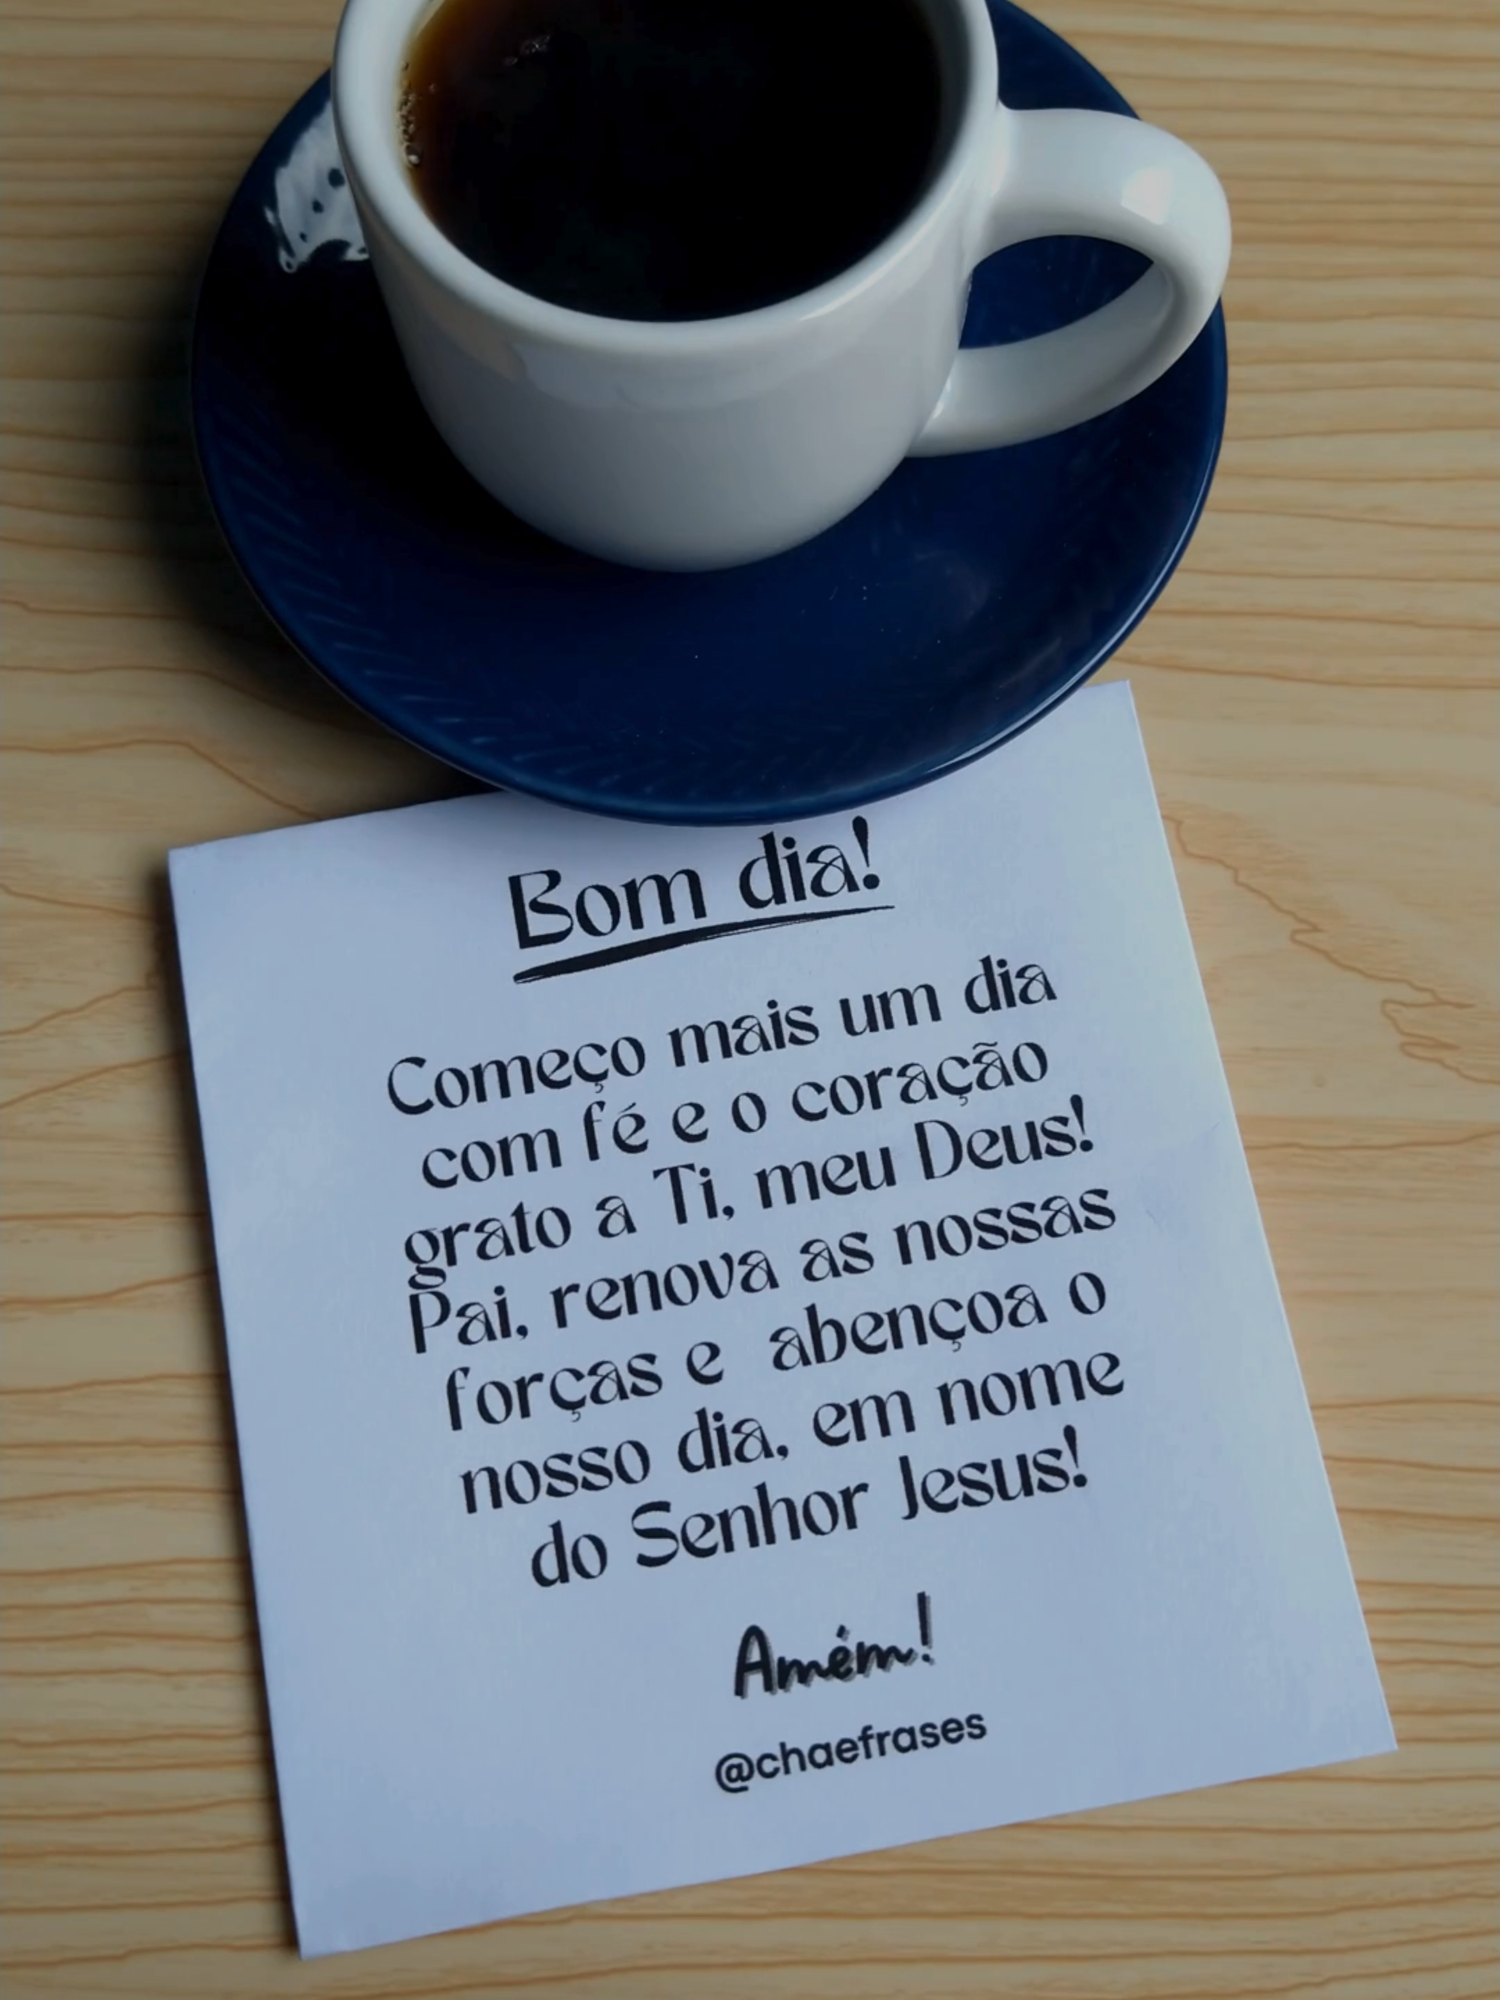 Bom dia!
Começo mais um dia
com fé e o coração
grato a Ti, meu Deus!
Pai, renova as nossas
forças e abençoa o
nosso dia, em nome
do Senhor Jesus!
Amém!
@chaefrases